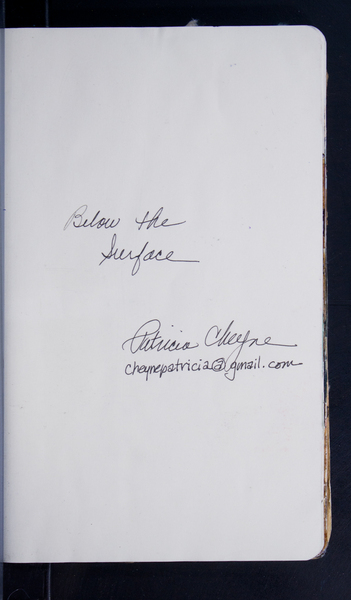 Below the
Surface
Patricia Cheyne
cheynepatricia@gmail.com